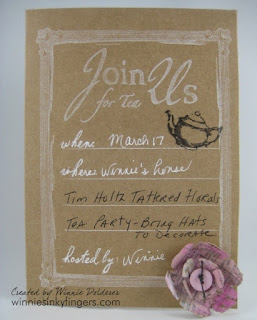 Join Us
for Tea
when: March 17
where: Winnie's house
Tim Holtz Tattered Florals
Tea Party - Bring Hats
to Decorate
hosted by: Winnie
Created by Winnie Dolderer
winniesinkyfingers.com